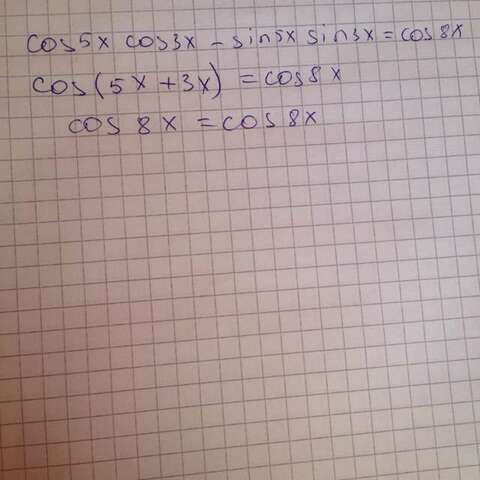 cos5x cos3x - sin5x sin3x = cos8x
cos(5x+3x) = cos8x
cos 8x = cos8x